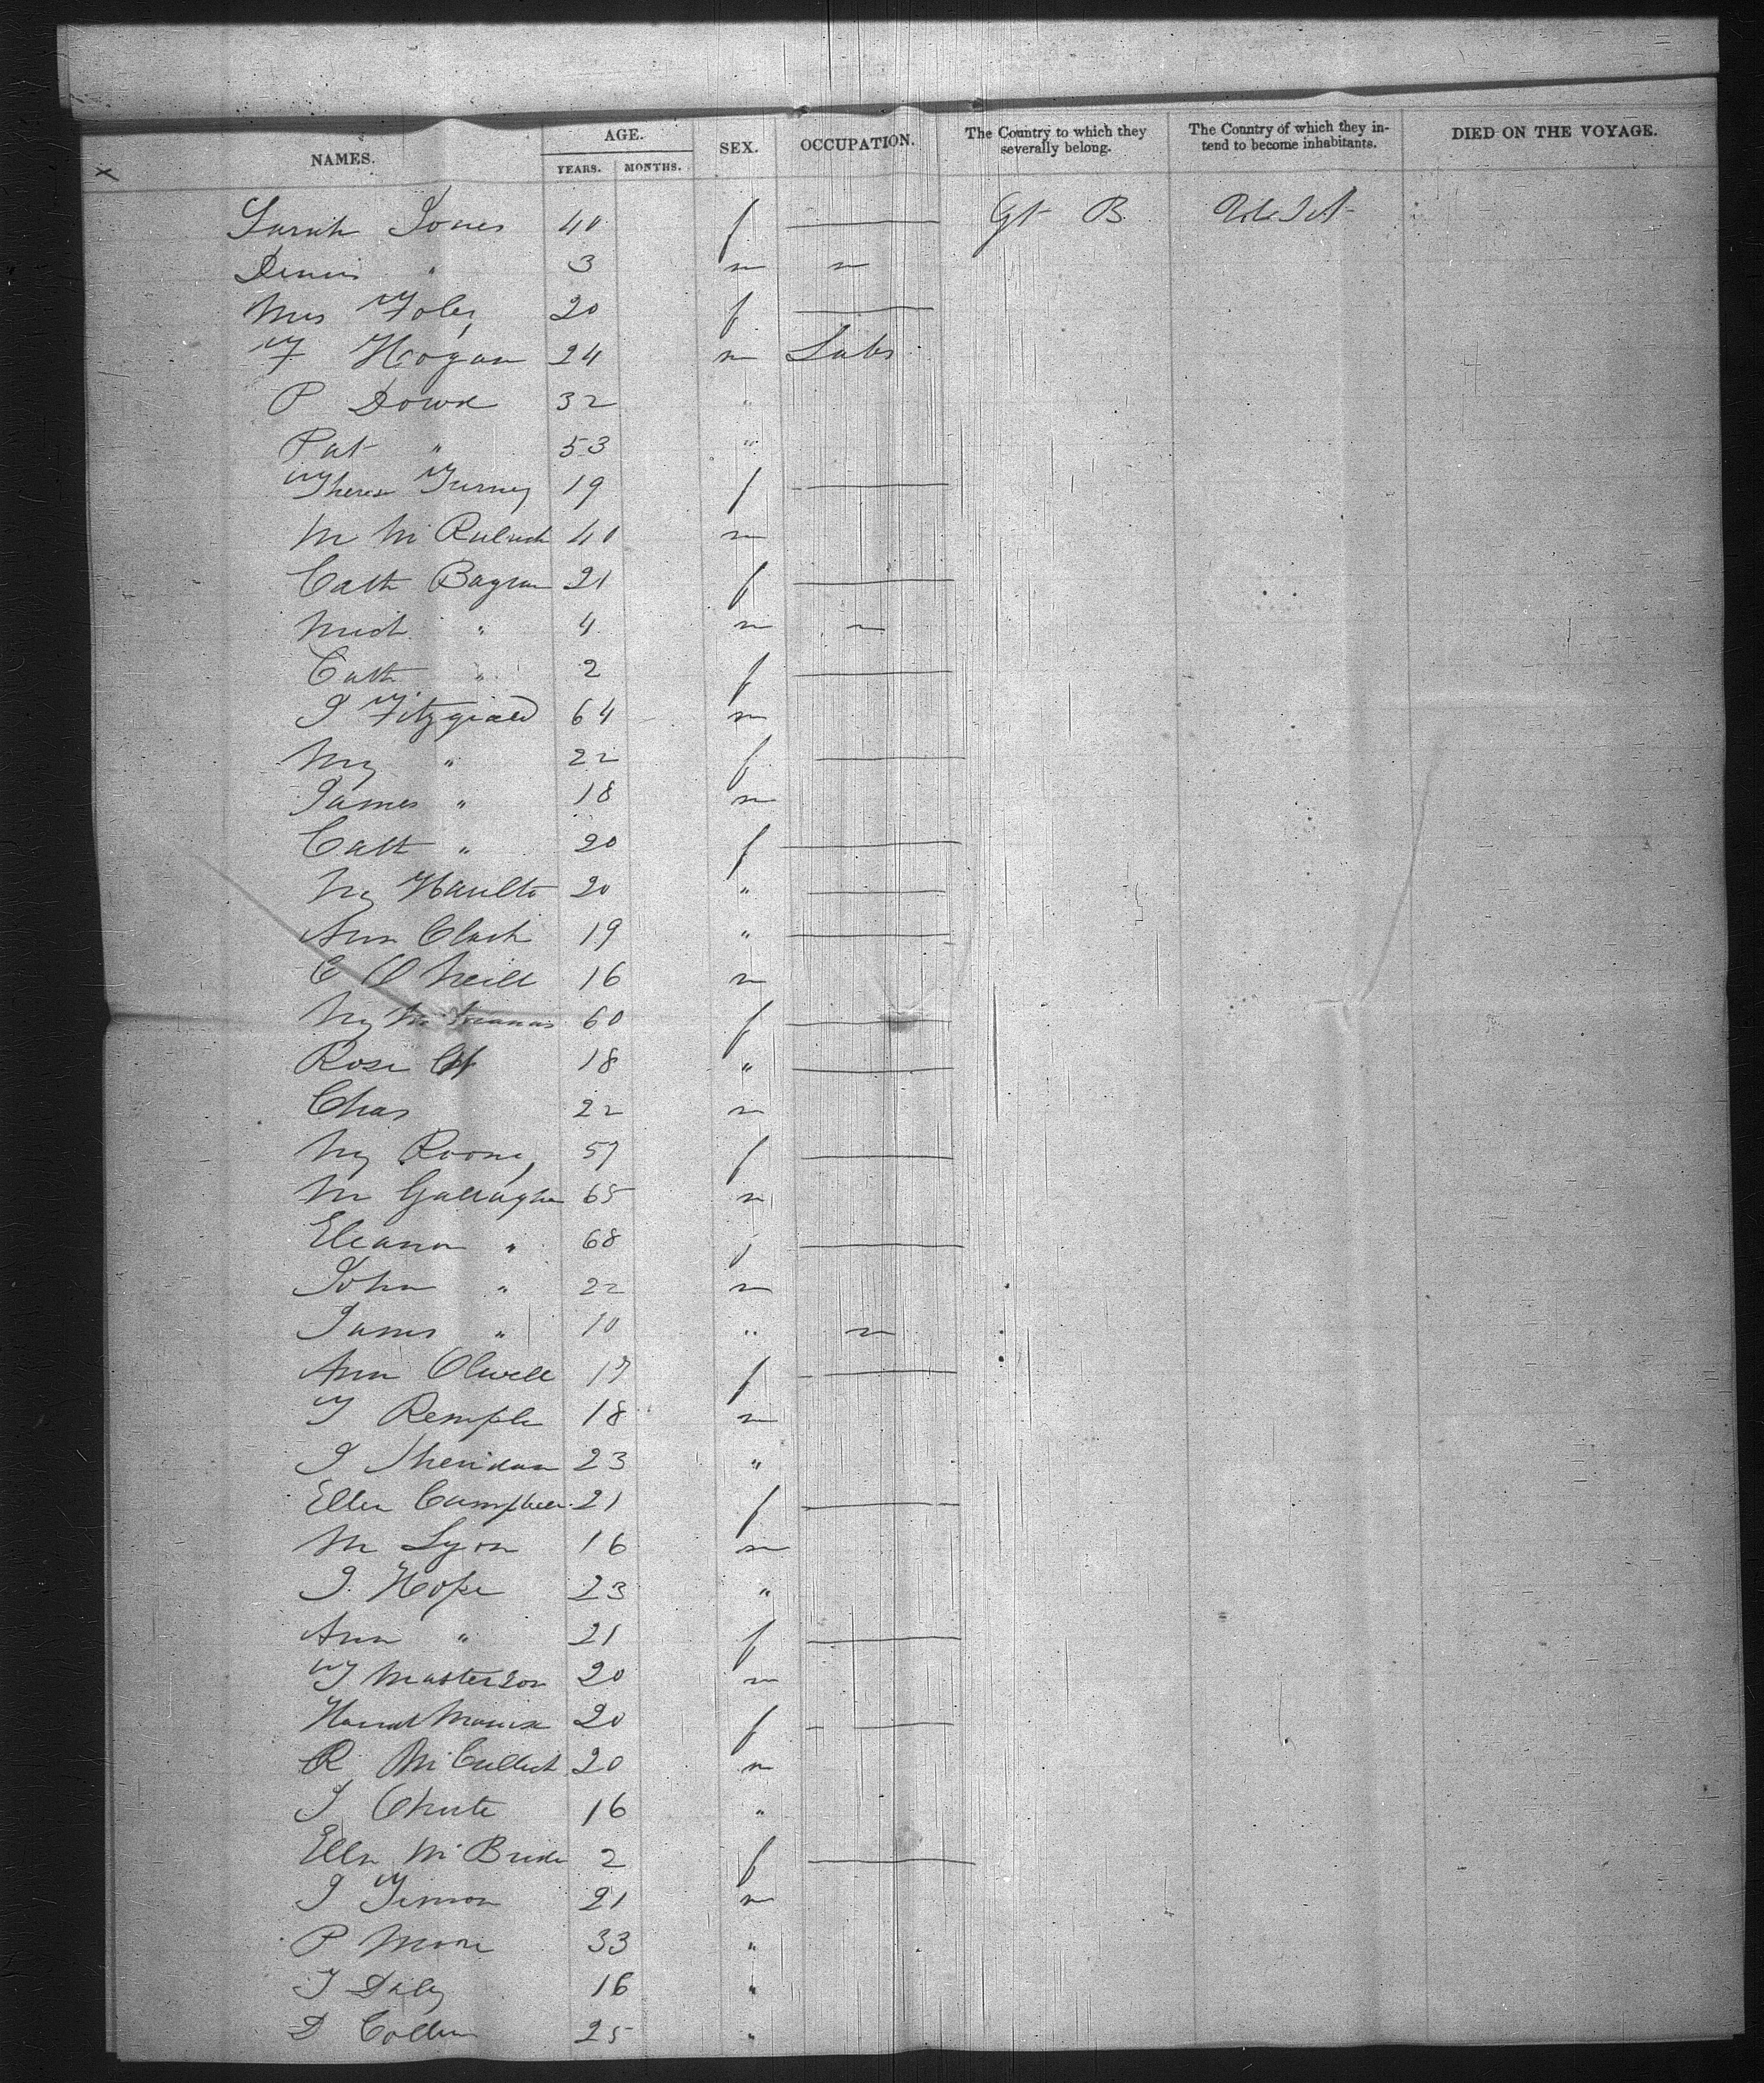 NAMES. AGE. YEARS. MONTHS. SEX. OCCUPATION. The Country to which they severally belong. The Country of which they intend to become inhabitants. DIED ON THE VOYAGE.
Sarah Jones 40 f — Gt B
Denis " 3 m
Mrs Foley 20 f —
F Hogan 24 m Labr
P Dowd 32 "
Pat " 53 "
Theresa 19 f —
M Mc 40 m
Cath 21 f —
Mich " 4 m
Cath " 2 f —
J Fitzgerald 64 m
My " 22 f —
James " 18 m
Cath " 20 f —
My 20 " —
Ann Clark 19 " —
C O Neill 16 m
My Mc 60 f —
Rose 18 " —
Chas 22 m
My Rooney 57 f —
M Gallagher 65 m
Eleanor " 68 f —
John " 22 m
James " 10 "
Ann Olwell 17 f —
T Remple 18 m
J Sheridan 23 "
Ellen Campbell 21 f —
M Lyon 16 m
J Hope 23 "
Ann " 21 f —
T Masterson 20 m
20 f —
R McCulloch 20 m
J Chute 16 "
Ellen McBride 2 f —
J Timon 21 m
P Moore 33 "
J Daley 16 "
D Collins 25 "